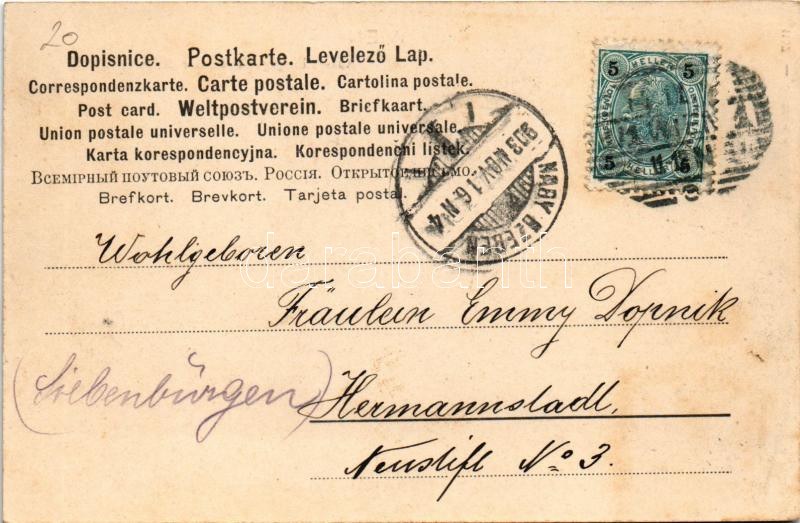 20
Dopisnice. Postkarte. Levelező Lap.
Correspondenzkarte. Carte postale. Cartolina postale.
Post card. Weltpostverein. Briefkaart.
Union postale universelle. Unione postale universale.
Karta korespondencyjna. Korespondenčni listek.
Всемірный поутовый союзъ. Россія. Открытое письмо.
Brefkort. Brevkort. Tarjeta postal.
5 HELLER 5
5 HELLER 5
903 NOV. 16 N 4
NAGY SZEBEN
Wohlgeboren
Fräulein Emmy Dopnik
(Siebenbürgen) Hermannstadt,
Neustift No 3.
darabanth